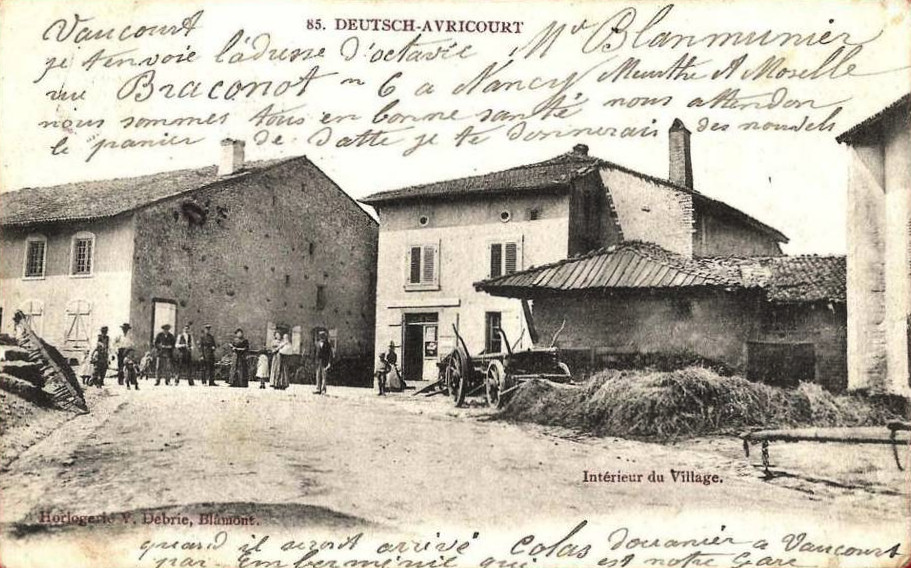 85. DEUTSCH-AVRICOURT
Vaucourt
Mr Blanmunier
je tenvoie l'adresse d'octavie
rue Braconot n 6 a Nancy Meurthe et Moselle
nous sommes tous en bonne santé nous attendon
le panier de datte je te donnerais des nouvels
Intérieur du Village.
Horlogerie V. Debrie, Blâmont.
quand il serait arrivé Colas douanier a Vaucourt
par Emberménil qui est notre Gare